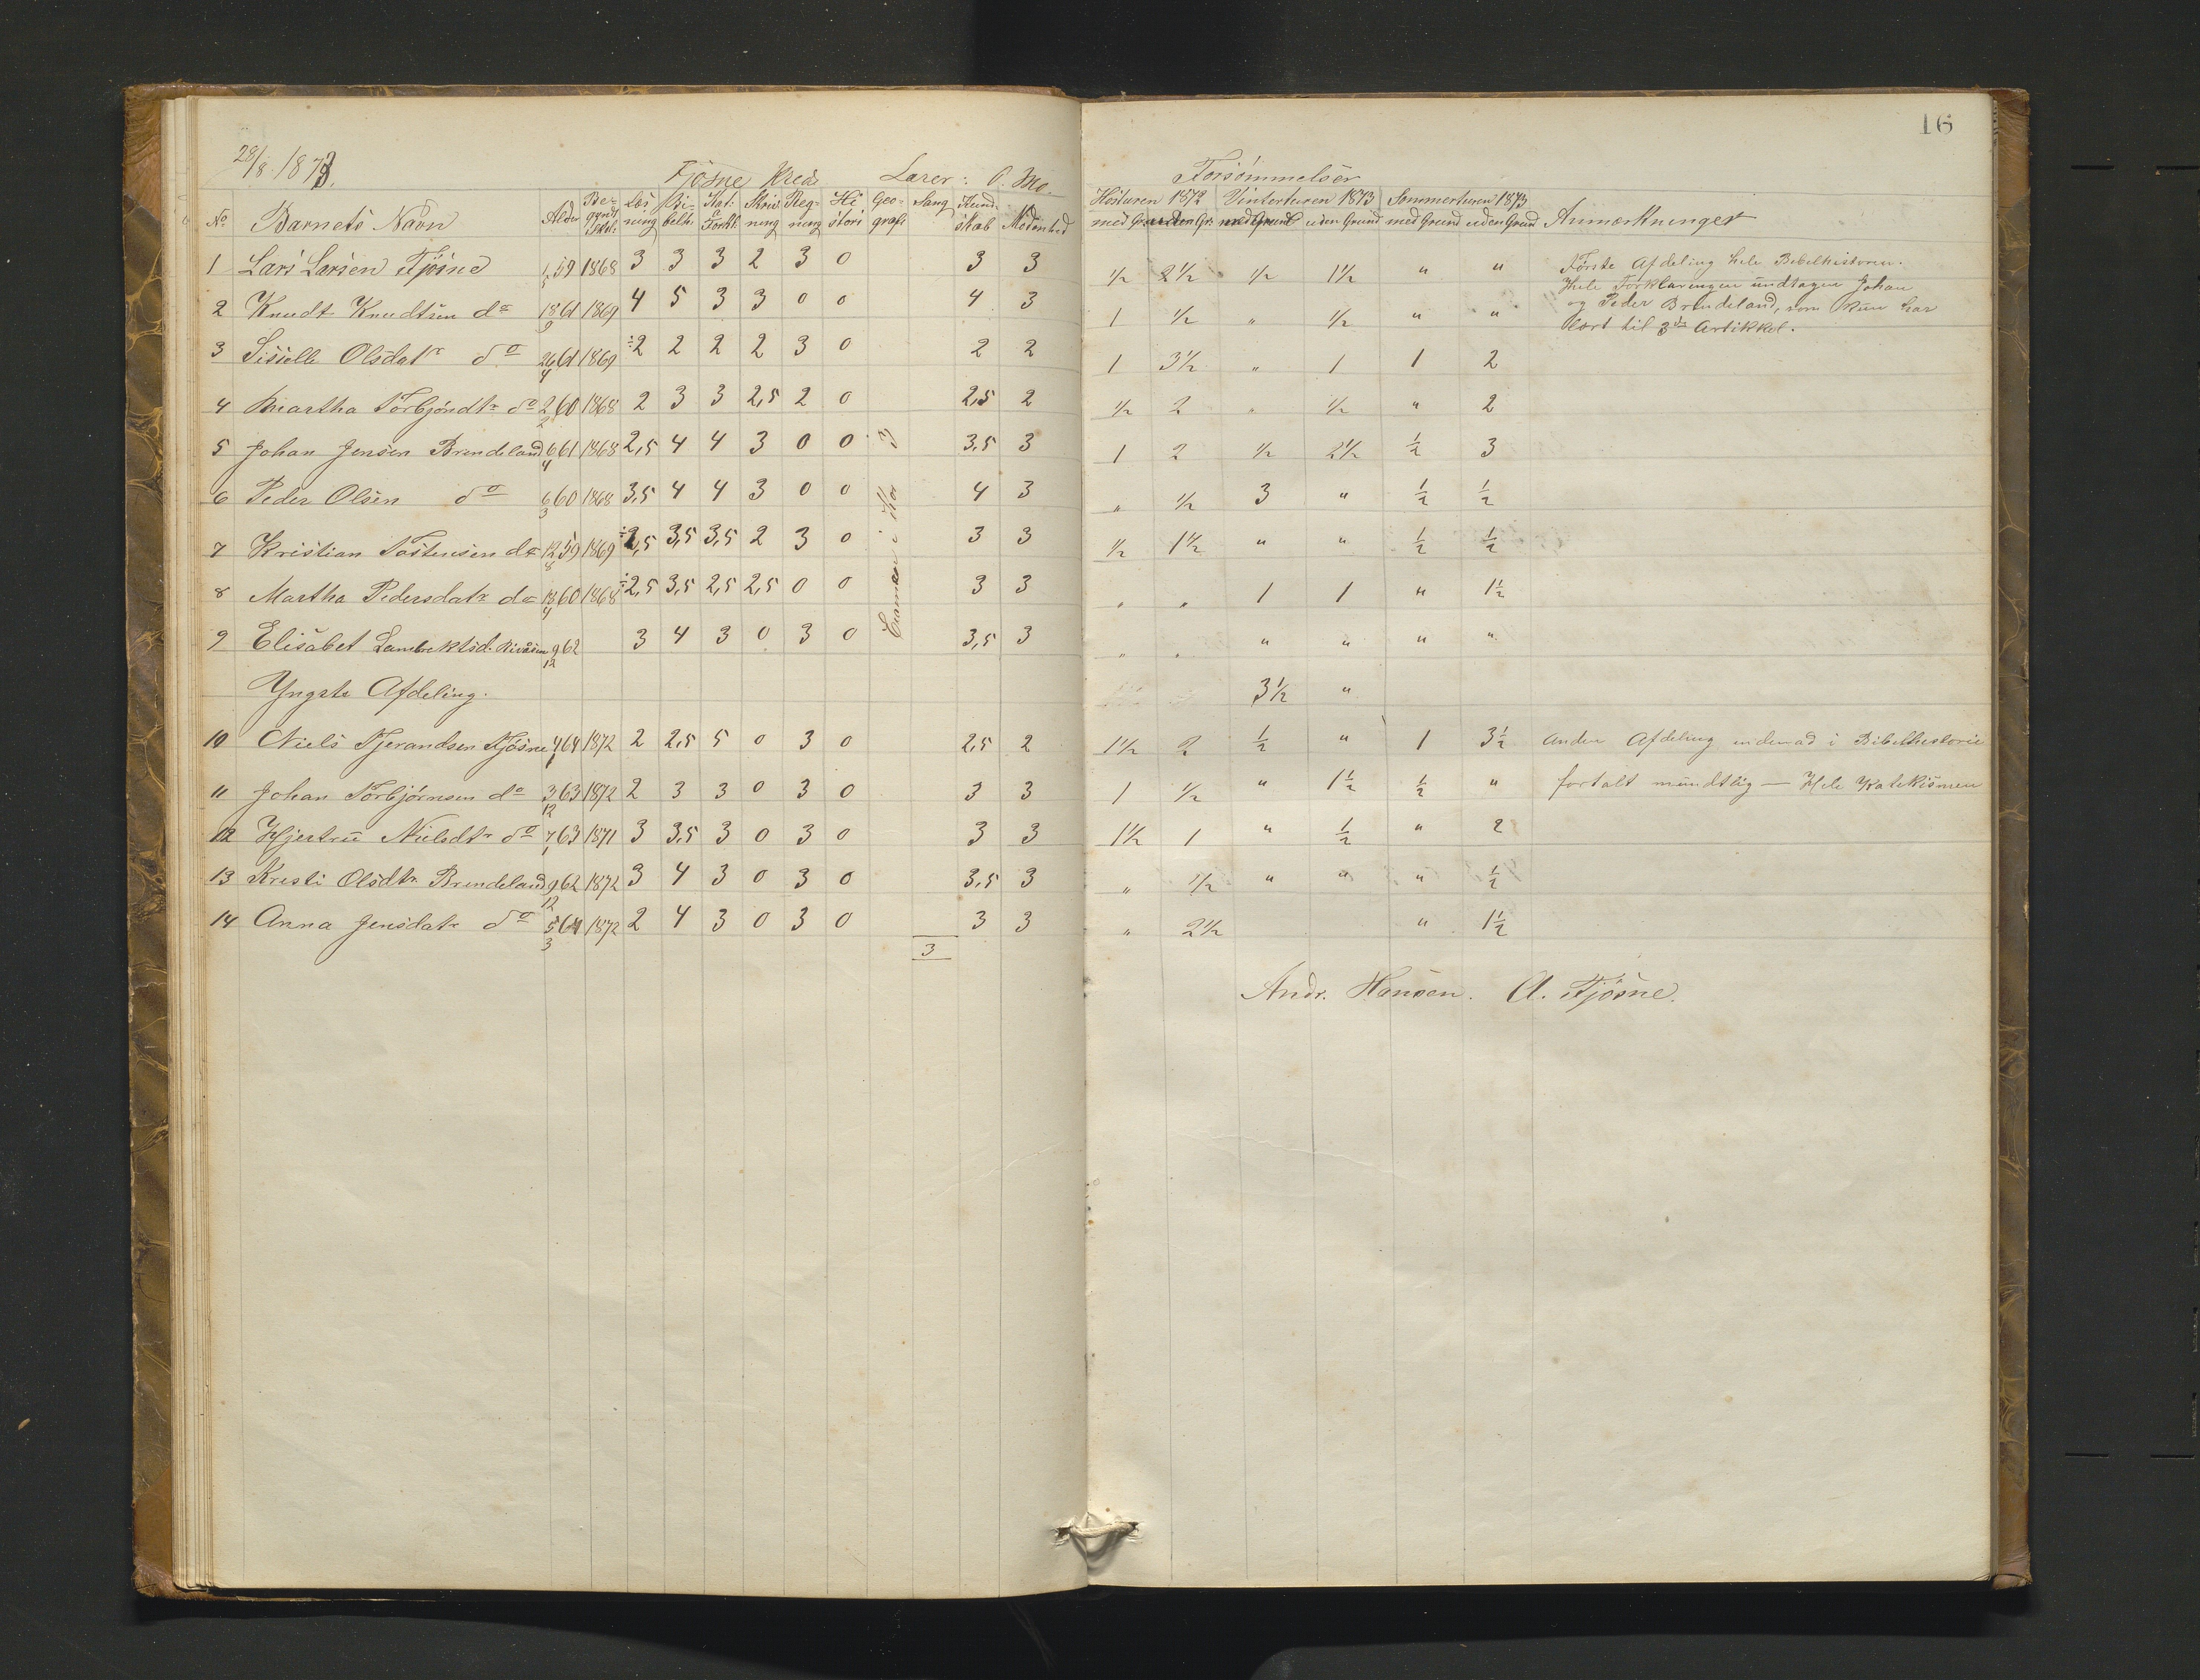 16
28/8 1873.
Fjøsne Kreds Lærer: O. Mo.
Forsømmelser
Høsturen 1872 Vinterturen 1873 Sommerturen 1873
No Barnets Navn Alder Be-gyndt Skol: Læs ning Bi-belh. Kat: & Forkl: Skriv ning Reg-ning Hi stori Geo-grafi Sang Kund-skab Modenhed med Gr. uden Gr. med Grund uden Grund med Grund uden Grund Anmærkninger
1 Lars Larsen Fjøsne 1/5 59 1868 3 3 3 2 3 0 3 3 1/2 2 1/2 1/2 1 1/2 " " Første Afdeling hele Bibelhistorien.
Hele Forklaringen undtagen Johan
2 Knudt Knudtsen do 18/9 61 1869 4 5 3 3 0 0 4 3 1 1/2 " 1/2 " " og Peder Brendeland, som kun har
lært til 3die Artikkel.
3 Sissele Olsdatr do 26/4 61 1869 ÷2 2 2 2 3 0 2 2 1 3 1/2 " 1 1 2
4 Martha Torbjøndtr do 2/2 60 1868 2 3 3 2,5 2 0 2,5 2 1/2 2 " 1/2 " 2
5 Johan Jensen Brendeland 6/4 61 1868 2,5 4 4 3 0 0 3,5 3 1 2 1/2 2 1/2 1/2 3
6 Peder Olsen do 6/3 60 1868 3,5 4 4 3 0 0 4 3 " 1/2 3 " 1/2 1/2
7 Kristian Tostensen do 12/8 59 1869 ÷2,5 3,5 3,5 2 3 0 3 3 1/2 1 1/2 " " 1/2 1/2
8 Martha Pedersdatr do 18/4 60 1868 ÷2,5 3,5 2,5 2,5 0 0 3 3 " " 1 1 " 1 1/2
9 Elisabet Lambrektsd. 9/12 62 3 4 3 0 3 0 3,5 3 " " " " " "
i Kor 3
Yngste Afdeling. 3 1/2 "
10 Niels Tjerandsen Fjøsne 4/1 64 1872 2 2,5 5 0 3 0 2,5 2 1 1/2 2 1/2 " 1 3 1/2 Anden Afdeling indenad i Bibelhistorie
11 Johan Torbjørnsen do 3/12 63 1872 2 3 3 0 3 0 3 3 1 1/2 " 1 1/2 1/2 " fortalt mundtlig — Hele Katekismen
12 Hjertru Nielsdtr do 7/1 63 1871 3 3,5 3 0 3 0 3 3 1 1/2 1 " 1/2 " 2
13 Kresti Olsdtr Brendeland 9/12 62 1872 3 4 3 0 3 0 3,5 3 " 1/2 " " " 1/2
14 Anna Jensdatr do 5/3 64 1872 2 4 3 0 3 0 3 3 " 2 1/2 " 1 1/2
3
Andr. Hansen. A. Fjøsne.